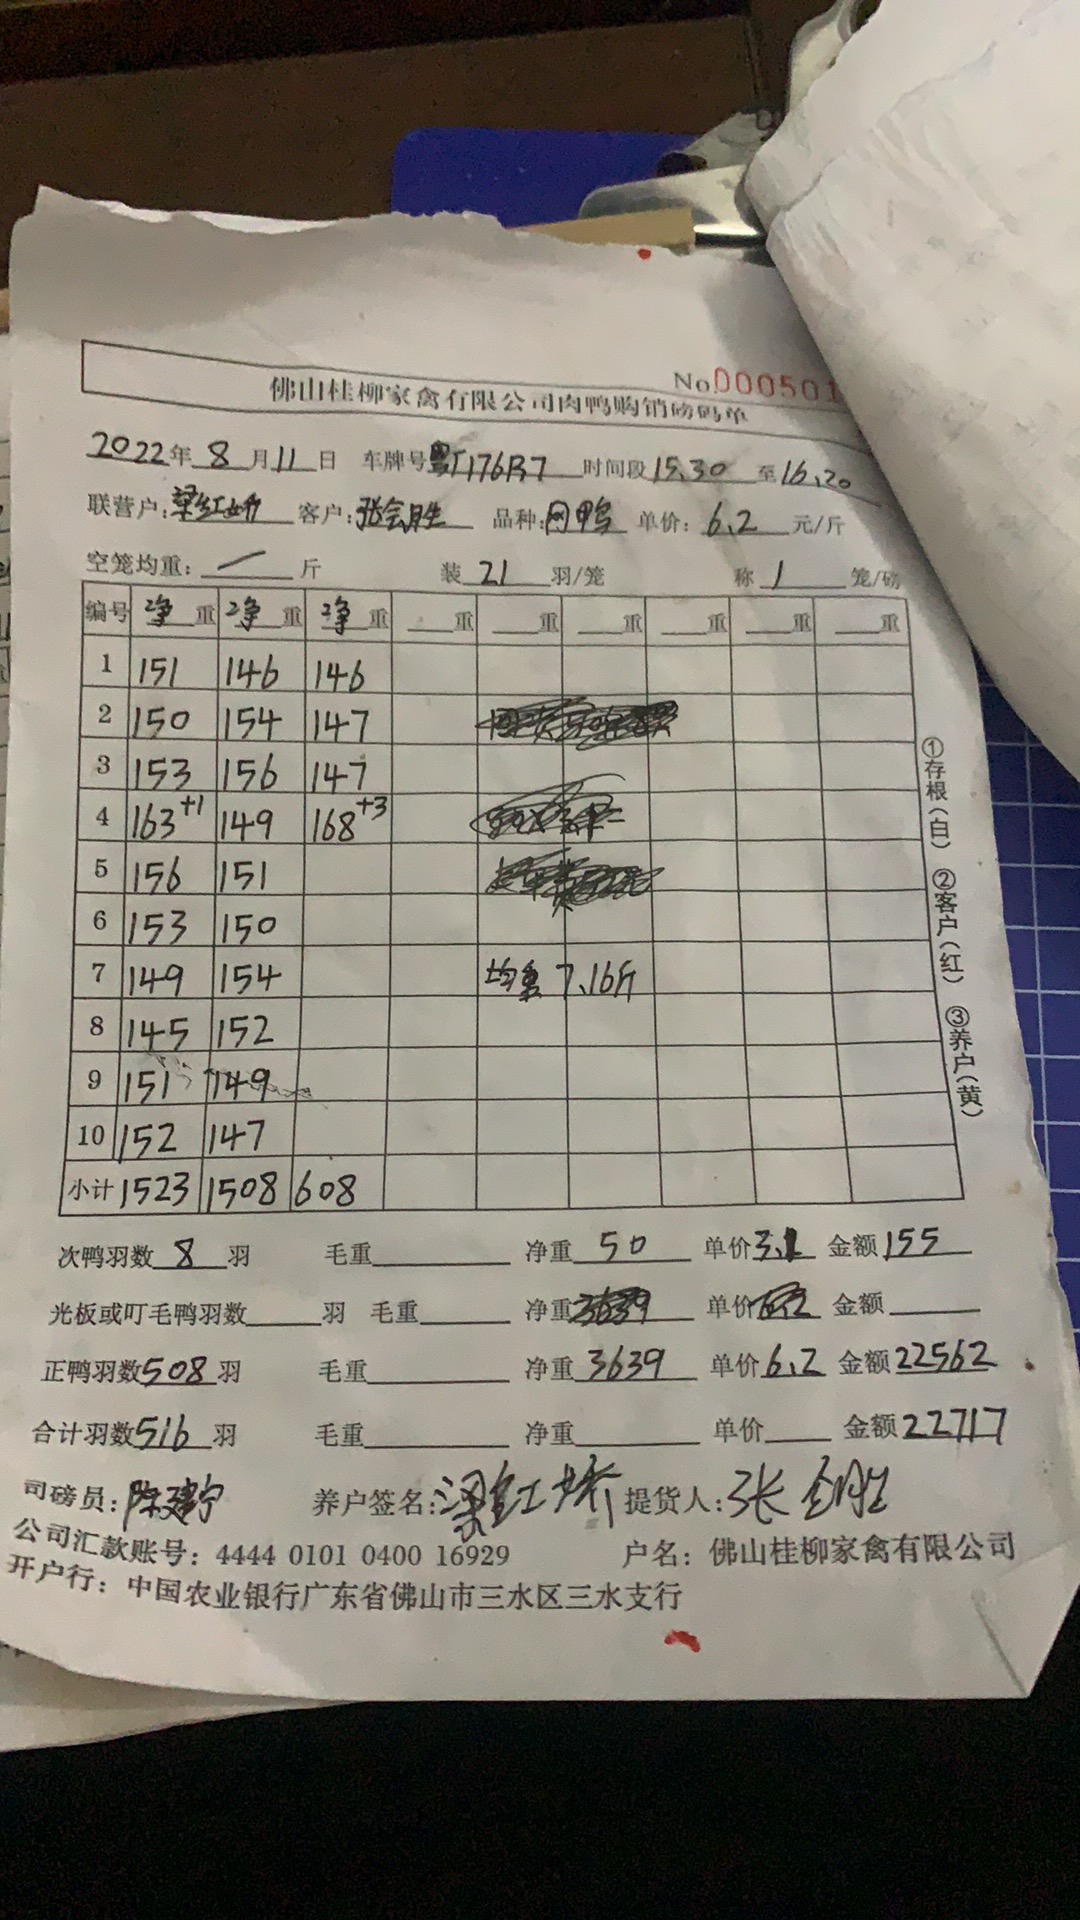 No.000501
佛山桂柳家禽有限公司肉鸭购销磅码单
2022年 8 月 11 日 车牌号 时间段 15.30 至 16.20
联营户: 梁红娇 客户: 张会胜 品种: 单价: 6.2 元/斤
空笼均重: 一 斤 装 21 羽/笼 称 1 笼/磅
编号 净重 净重 净重 重 重 重 重 重 重
1 151 146 146
2 150 154 147
3 153 156 147
4 163+1 149 168+3
5 156 151
6 153 150
7 149 154 均重 7.16斤
8 145 152
9 151 149
10 152 147
小计 1523 1508 608
次鸭羽数 8 羽 毛重 净重 50 单价 3.1 金额 155
光板或叮毛鸭羽数 羽 毛重 净重 3639 单价 6.2 金额
正鸭羽数 508 羽 毛重 净重 3639 单价 6.2 金额 22562
合计羽数 516 羽 毛重 净重 单价 金额 22717
司磅员: 陈建宁 养户签名: 梁红娇 提货人: 张会胜
公司汇款账号: 4444 0101 0400 16929 户名: 佛山桂柳家禽有限公司
开户行: 中国农业银行广东省佛山市三水区三水支行
①存根(白) ②客户(红) ③养户(黄)